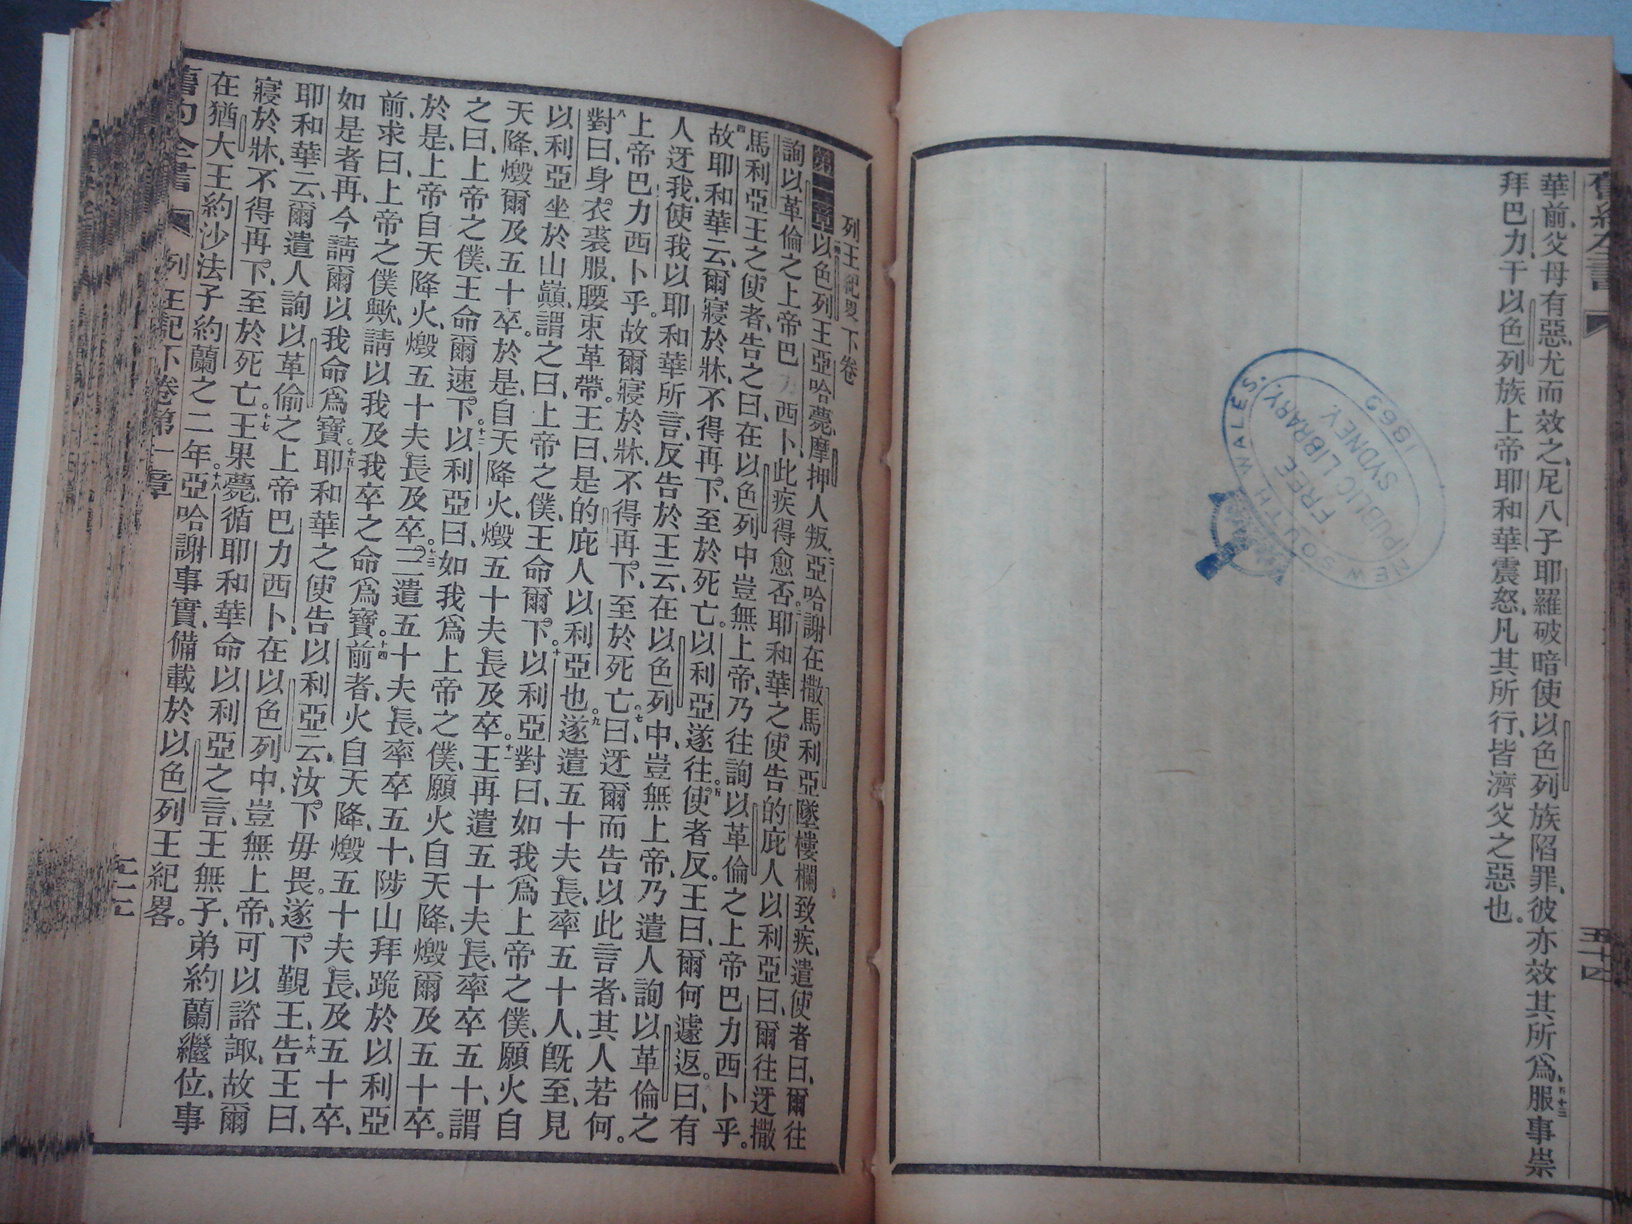 舊約全書
五十四
華前父母有惡尤而效之尼八子耶羅破暗使以色列族陷罪彼亦效其所為五十三服事崇
拜巴力干以色列族上帝耶和華震怒凡其所行皆濟父之惡也。
NEW SOUTH WALES.
FREE
PUBLIC LIBRARY,
SYDNEY
1869
列王紀畧下卷
第一章以色列王亞哈薨摩押人叛二亞哈謝在撒馬利亞墜樓欄致疾遣使者曰爾往
詢以革倫之上帝巴力西卜此疾得愈否三耶和華之使告的庇人以利亞曰爾往迓撒
馬利亞王之使者告之曰在以色列中豈無上帝乃往詢以革倫之上帝巴力西卜乎。
四故耶和華云爾寢於牀不得再下至於死亡。以利亞遂往。五使者反。王曰爾何遽返。六曰有
人迓我使我以耶和華所言反告於王云在以色列中豈無上帝乃遣人詢以革倫之
上帝巴力西卜乎。故爾寢於牀不得再下至於死亡。七曰迓爾而告以此言者其人若何。
八對曰身衣裘服腰束革帶。王曰是的庇人以利亞也。九遂遣五十夫長率五十人旣至見
以利亞坐於山巔謂之曰上帝之僕王命爾下。十以利亞對曰如我為上帝之僕願火自
天降燬爾及五十卒。於是自天降火燬五十夫長及卒。十一王再遣五十夫長率卒五十謂
之曰上帝之僕王命爾速下。十二以利亞曰如我為上帝之僕願火自天降燬爾及五十卒。
於是上帝自天降火燬五十夫長及卒。十三三遣五十夫長率卒五十陟山拜跪於以利亞
前求曰上帝之僕歟請以我及我卒之命為寶。十四前者火自天降燬五十夫長及五十卒
如是者再今請爾以我命為寶。十五耶和華之使告以利亞云汝下毋畏。遂下覲王十六告王曰
耶和華云爾遣人詢以革倫之上帝巴力西卜在以色列中豈無上帝可以諮諏故爾
寢於牀不得再下至於死亡。十七王果薨循耶和華命以利亞之言王無子弟約蘭繼位事
在猶大王約沙法子約蘭之二年。十八亞哈謝事實備載於以色列王紀畧。
舊約全書 列王紀下卷第一章